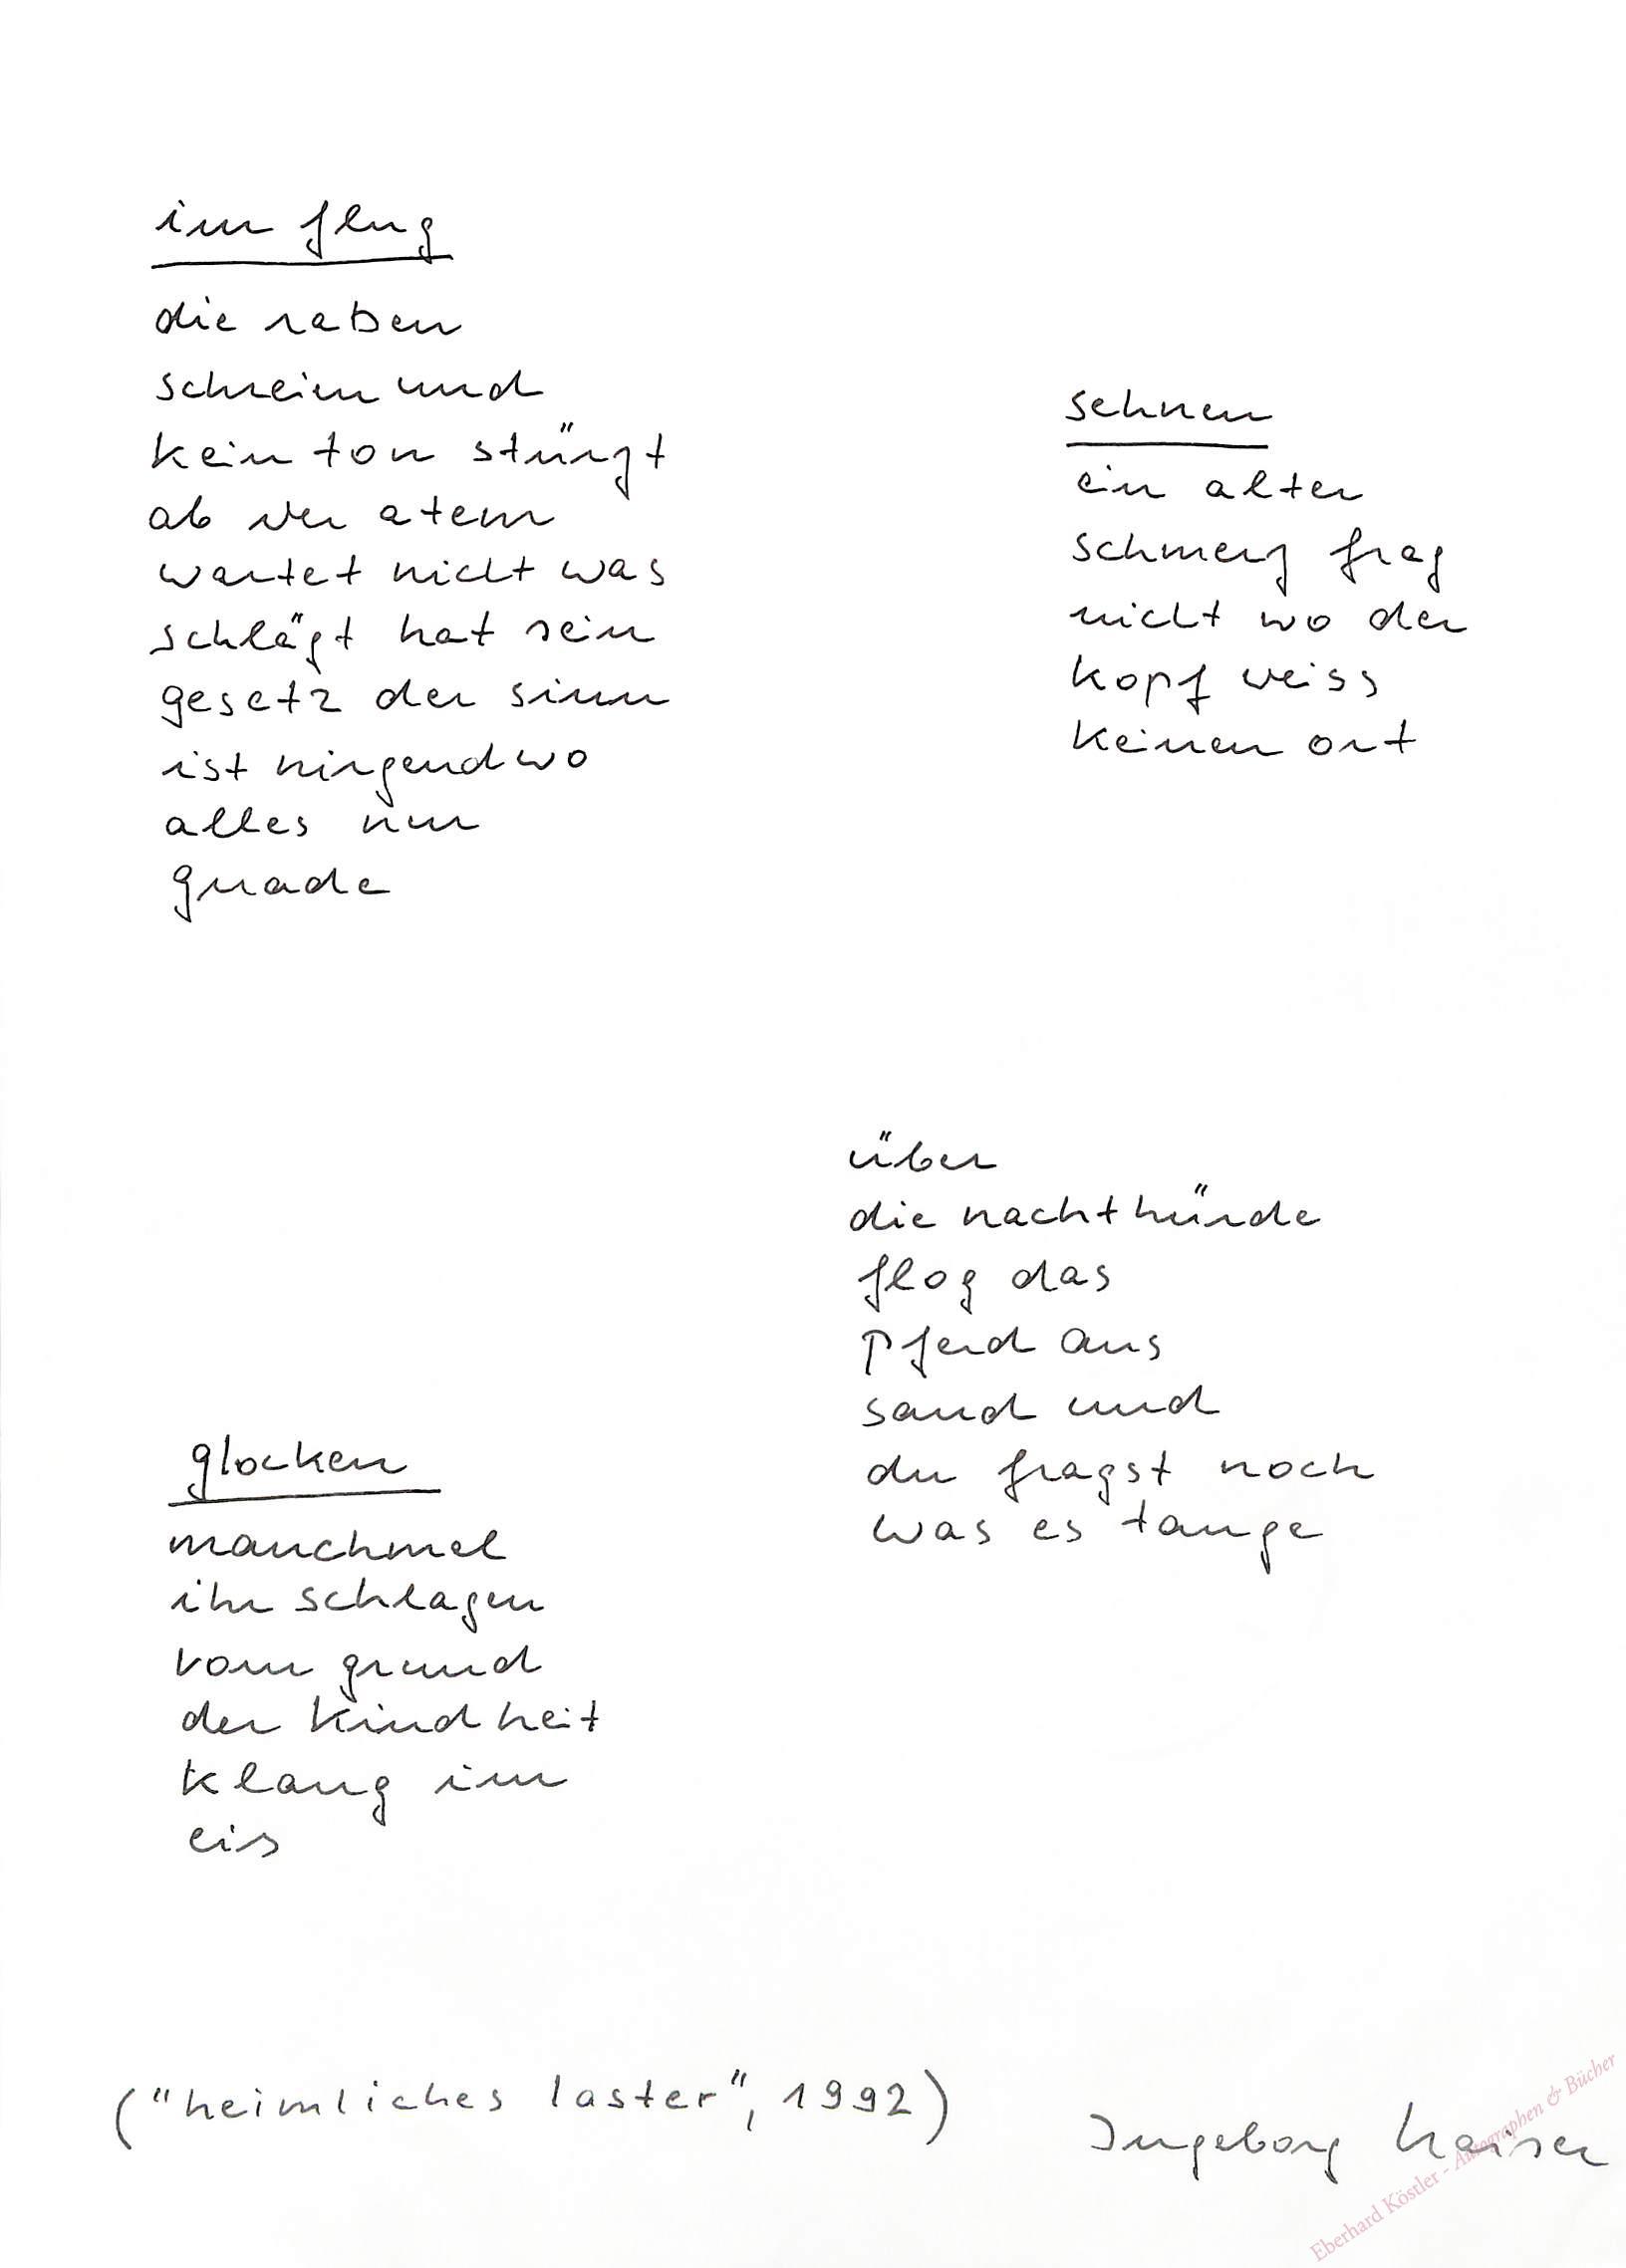 im flug
die raben
schreien und
kein ton stürzt
ab der atem
wartet nicht was
schlägt hat sein
gesetz der sinn
ist nirgendwo
alles nur
gnade
sehnen
ein alter
schmerz frag
nicht wo der
kopf weiss
keinen ort
über
die nachthürde
flog das
pferd aus
sand und
du fragst noch
was es tauge
glocken
manchmal
ihr schlagen
vom grund
der kindheit
klang im
eis
("heimliches laster", 1992)
Ingeborg Kaiser
Eberhard Köstler - Autographen & Bücher